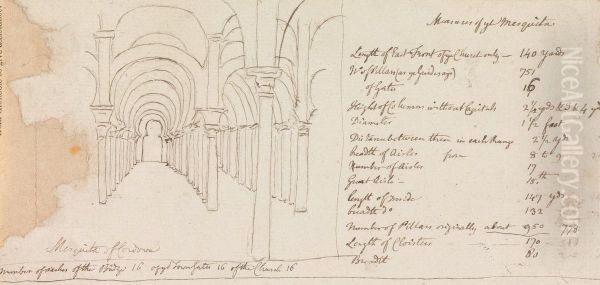 Measures of ye Mesquita
Length of East Front of ye Church only — 140 yards
No of Pillars (as ye guides say) 751
of Gates 16
Height of Columns without Capitals 2 1/2 yds
Diameter 1 1/2 foot
Distance between them in each Range 2 1/2 yds
breadth of Aisles from 8 to 9
Number of Aisles 17
Great Aisle — 15 ft
length of inside 147 yds
breadth Do 132
Number of Pillars originally about 950 778
Length of Cloisters 170
Breadth 80
Mesquita of Cordova
number of arches of the Bridge 16 of ye Town Gates 16 of the Church 16
NiceArtGallery.com